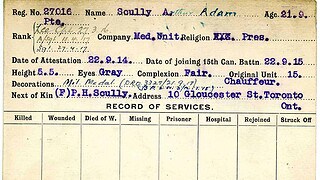 Reg. No. 27016 Name Scully A. Adam Age. 21.9.
Pte.
Rank Company Med. Unit Religion XXX. Pres.
Date of Attestation 22.9.14. Date of joining 15th Can. Battn. 22.9.15
Height. 5.5. Eyes Gray Complexion Fair. Original Unit 15.
Decorations Mil. Medal Chauffeur.
Next of Kin (F) P.H. Scully. Address 10 Gloucester St. Toronto
Ont.
RECORD OF SERVICES.
Killed Wounded Died of W. Missing Prisoner Hospital Rejoined Struck Off